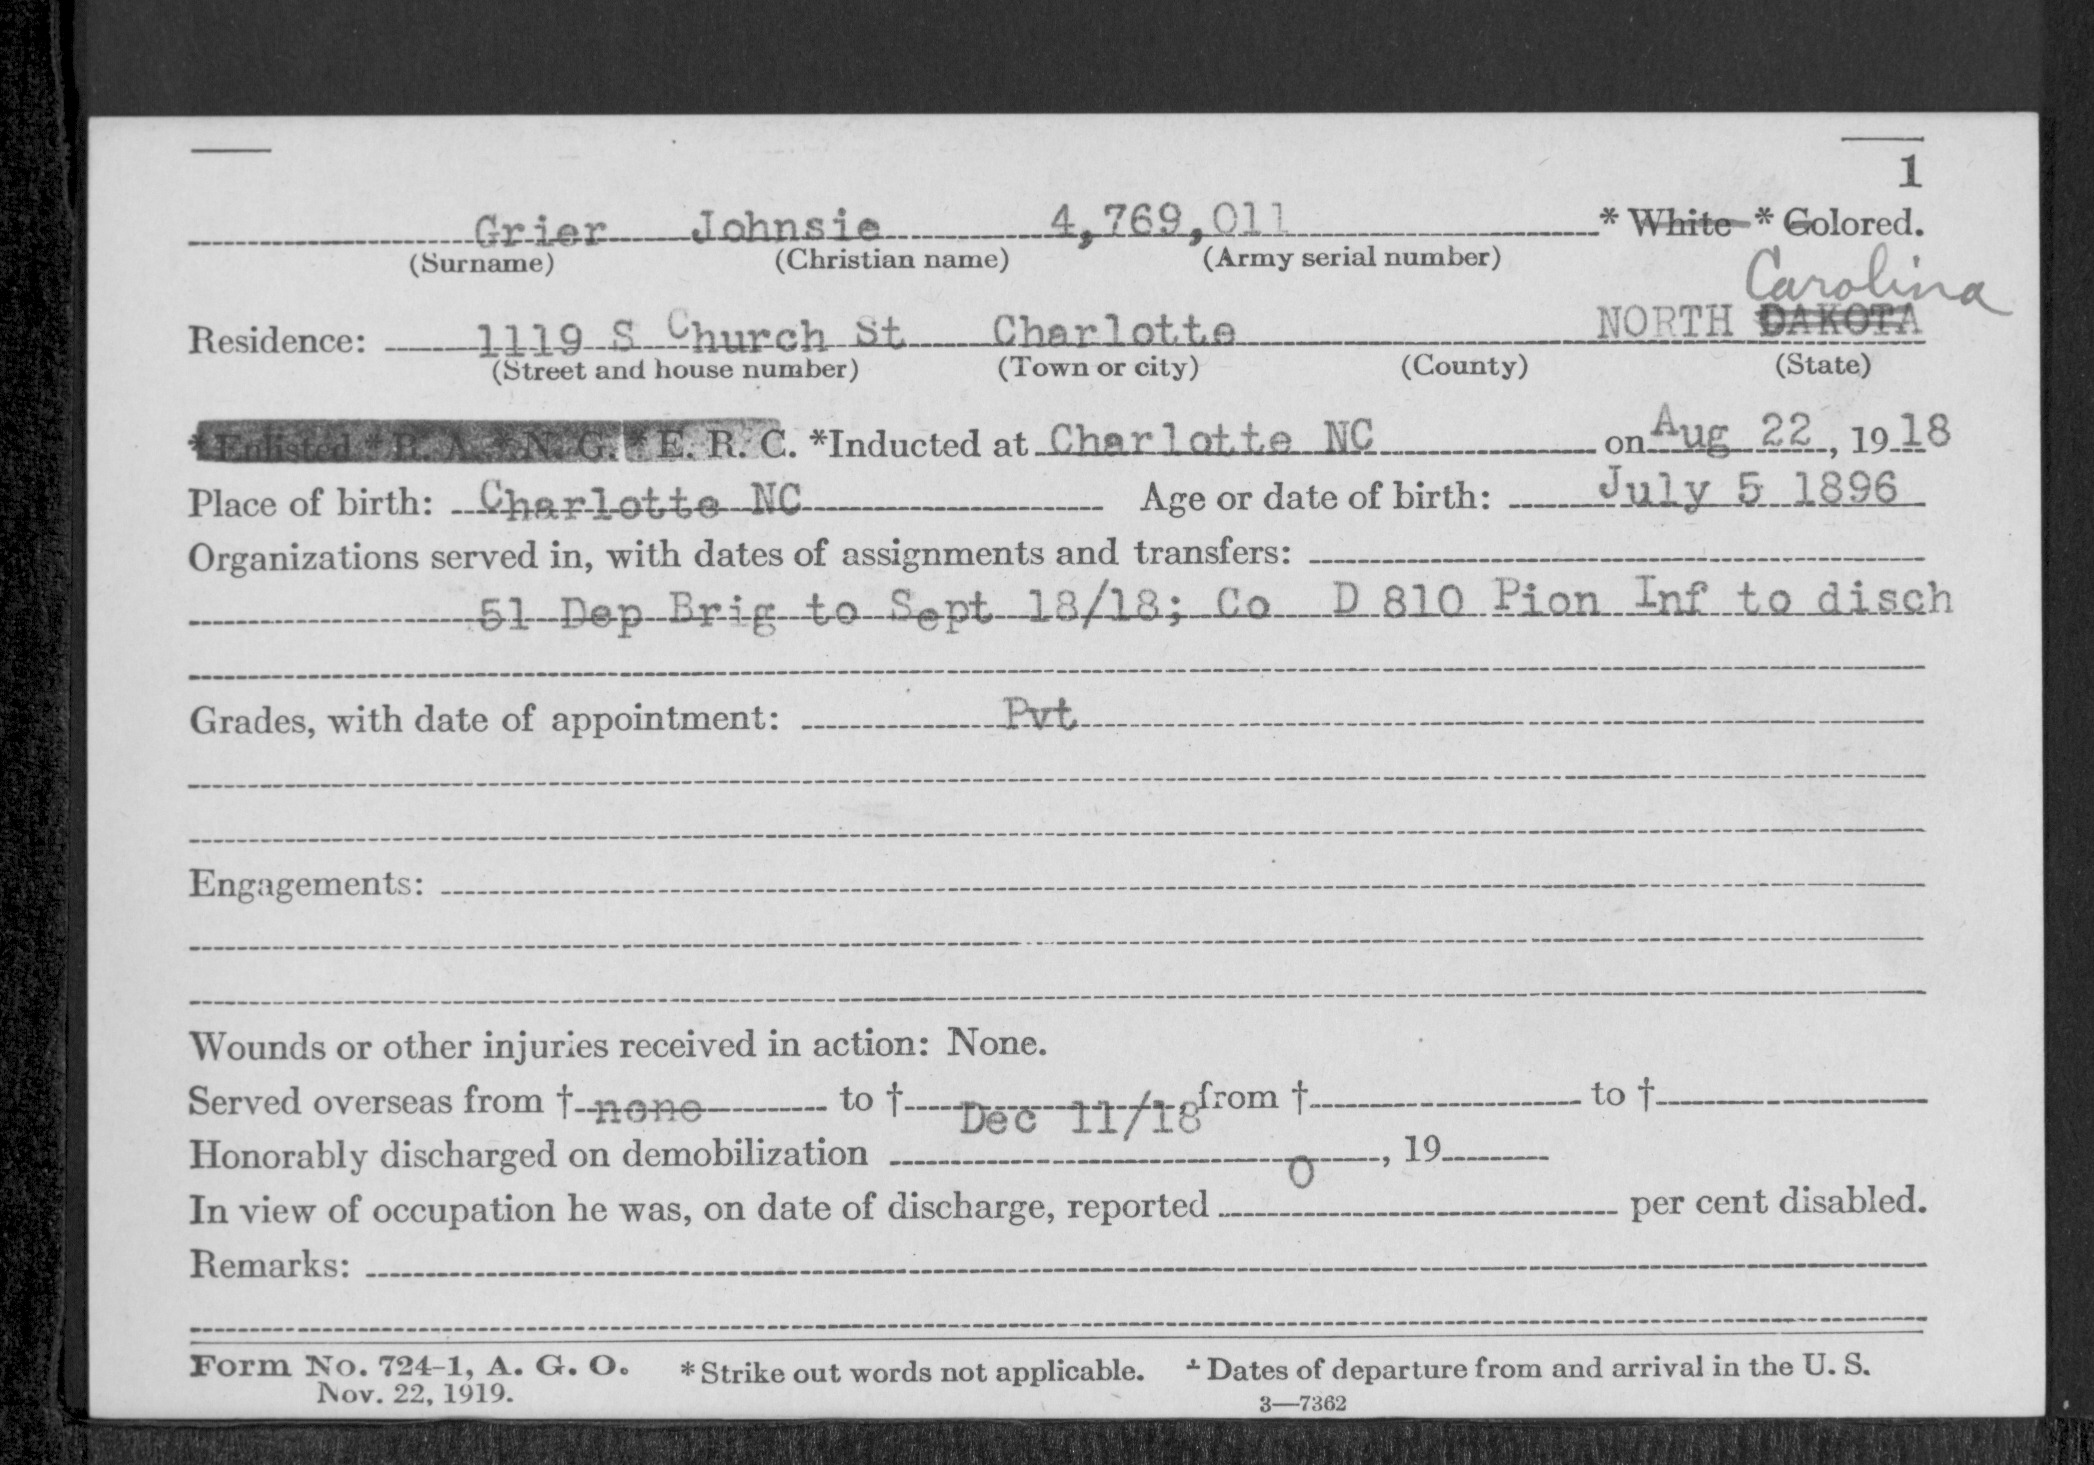 1
Grier Johnsie 4,769,011 * White * Colored.
(Surname) (Christian name) (Army serial number)
Carolina
Residence: 1119 S Church St Charlotte NORTH DAKOTA
(Street and house number) (Town or city) (County) (State)
* Enlisted * R. A. * N. G. * E. R. C. *Inducted at Charlotte NC on Aug 22, 1918
Place of birth: Charlotte NC Age or date of birth: July 5 1896
Organizations served in, with dates of assignments and transfers:
51 Dep Brig to Sept 18/18; Co D 810 Pion Inf to disch
Grades, with date of appointment: Pvt
Engagements:
Wounds or other injuries received in action: None.
Served overseas from † none to † , from † to †
Dec 11/18
Honorably discharged on demobilization , 19
O
In view of occupation he was, on date of discharge, reported per cent disabled.
Remarks:
Form No. 724-1, A. G. O. *Strike out words not applicable. † Dates of departure from and arrival in the U. S.
Nov. 22, 1919. 3—7362